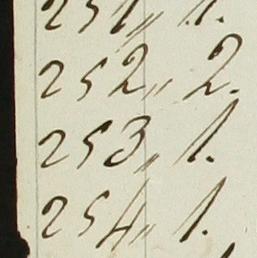 251„ 1.
252„ 2.
253„ 1.
254„ 1.